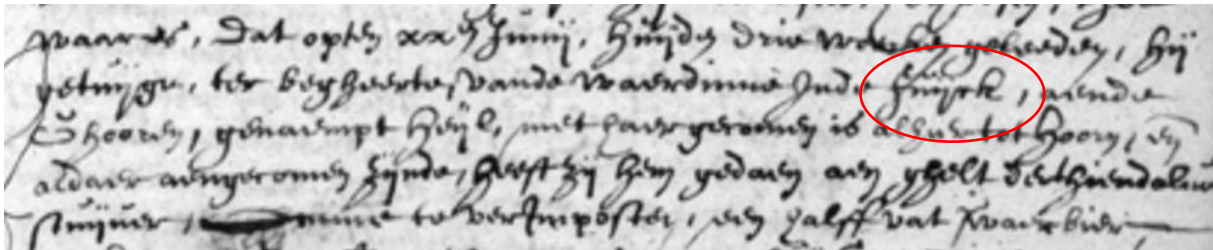 waar es, dat opten xxen Junij, huijden drie weecken geleeden, hij
getuijge, ter begheerte vande waerdinne Inde Snijerck, aende
Shooren, genaempt Heijl, met haer gecomen is alhier tot Hoorn, en
aldaer aengecomen zijnde, heeft zij hem gedaen aen ghelt derthiendalven
stuijver, omme te verimposten, een halff vat swaer bier